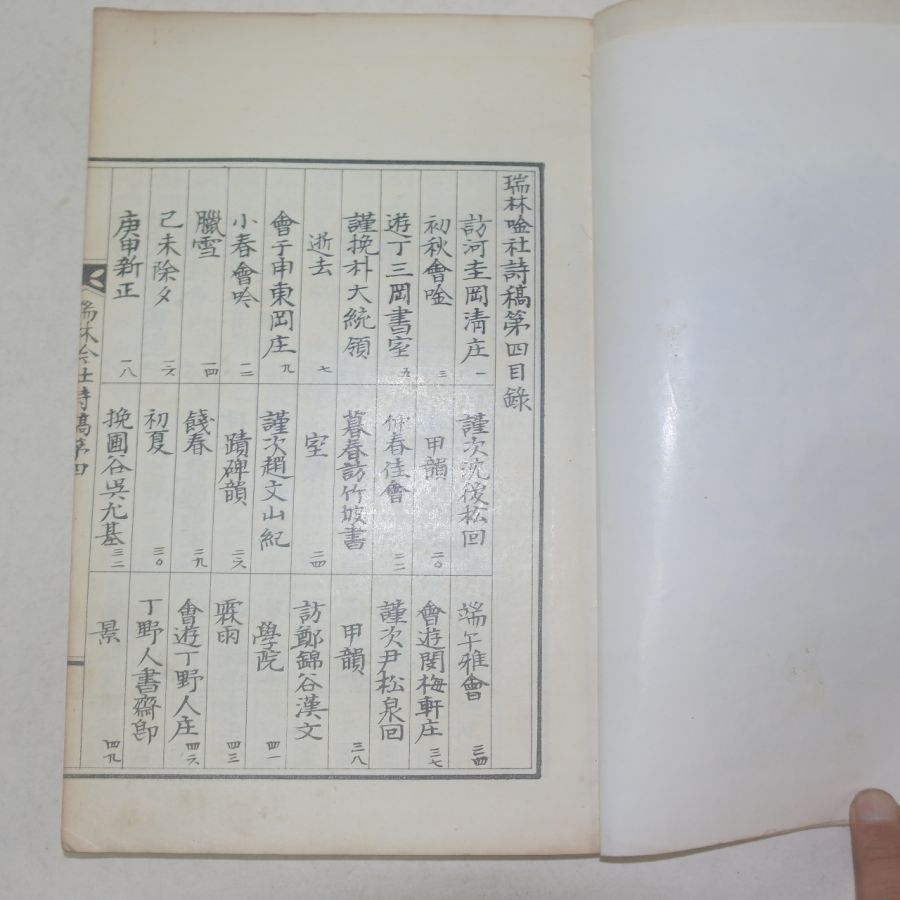 瑞林唫社詩稿第四目錄
訪河圭岡淸庄 一
初秋會唫 三
遊丁三岡書室 五
謹挽朴大統領
逝去 七
會于申東岡庄 九
小春會吟 一二
臘雪 一四
己未除夕 一六
庚申新正 一八
謹次沈後松回
甲韻 二〇
仲春佳會 二二
暮春訪竹坡書
室 二四
謹次趙文山紀
蹟碑韻 二六
餞春 二九
初夏 三〇
挽圃谷吳允基 三二
端午雅會 三四
會遊閔梅軒庄 三七
謹次尹松泉回
甲韻 三八
訪鄭錦谷漢文
學院 四一
霖雨 四三
會遊丁野人庄 四六
丁野人書齋卽
景 四九
瑞林吟社詩稿第四